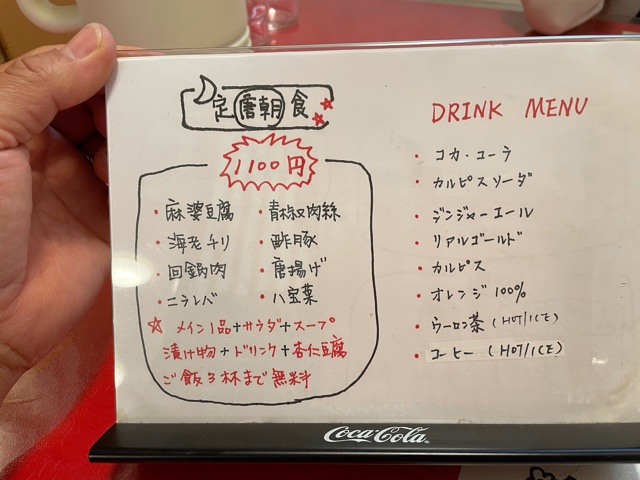 定 唐朝 食
1100円
・麻婆豆腐 ・青椒肉絲
・海老チリ ・酢豚
・回鍋肉 ・唐揚げ
・ニラレバ ・八宝菜
☆ メイン1品+サラダ+スープ
漬け物+ドリンク+杏仁豆腐
ご飯3杯まで無料
DRINK MENU
・コカ・コーラ
・カルピスソーダ
・ジンジャーエール
・リアルゴールド
・カルピス
・オレンジ100%
・ウーロン茶(HOT/ICE)
・コーヒー(HOT/ICE)
Coca-Cola